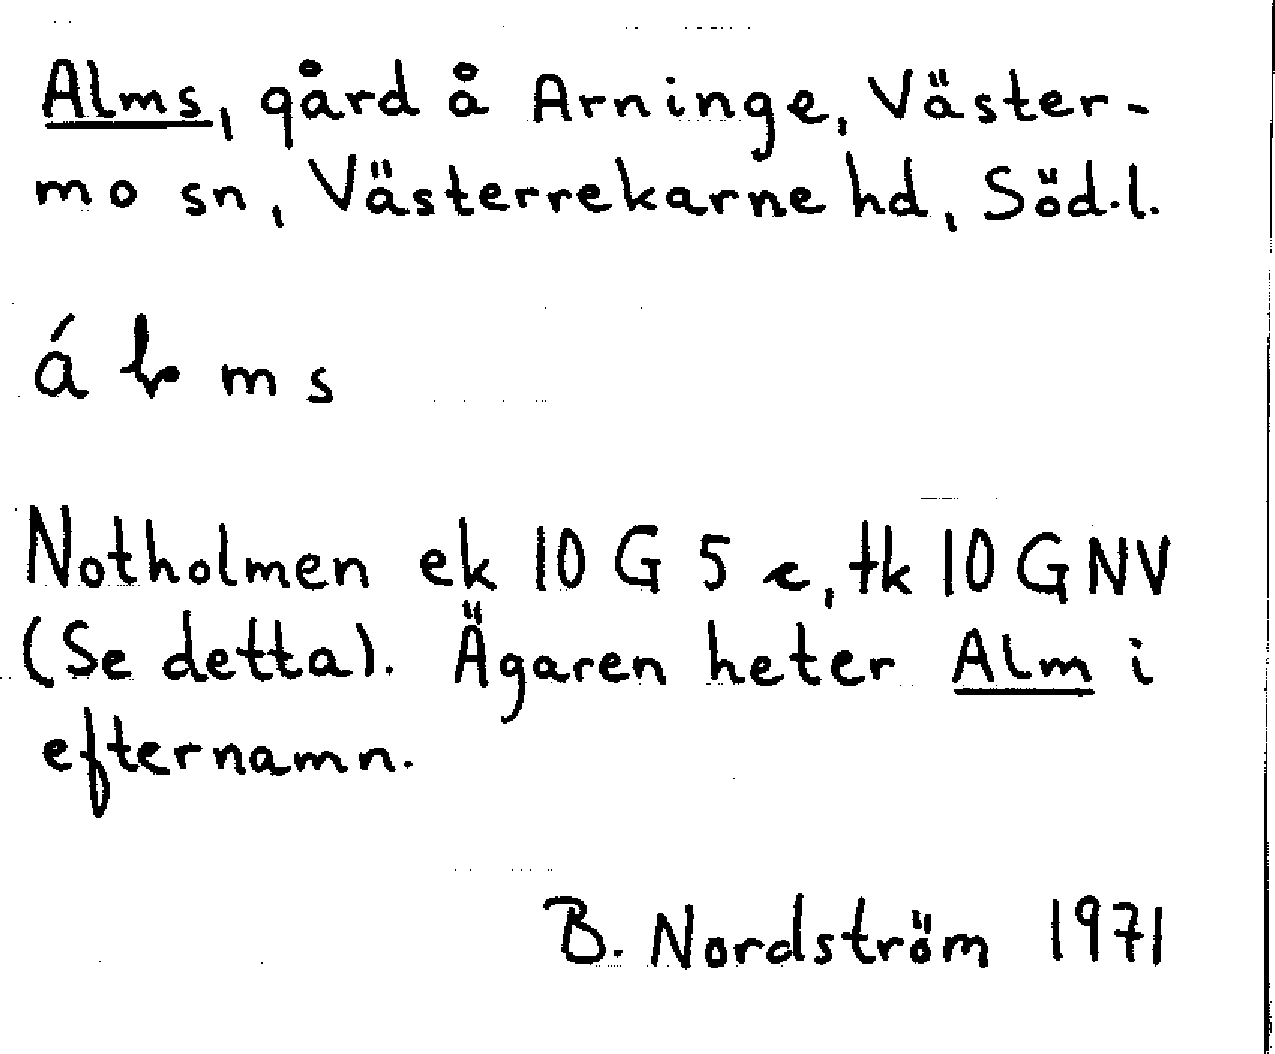 Alms, gård å Arninge, Väster-
mo sn, Västerrekarne hd, Söd.l.
á ł m s
Notholmen ek 10 G 5 c, tk 10 G NV
(Se detta). Ägaren heter Alm i
efternamn.
B. Nordström 1971